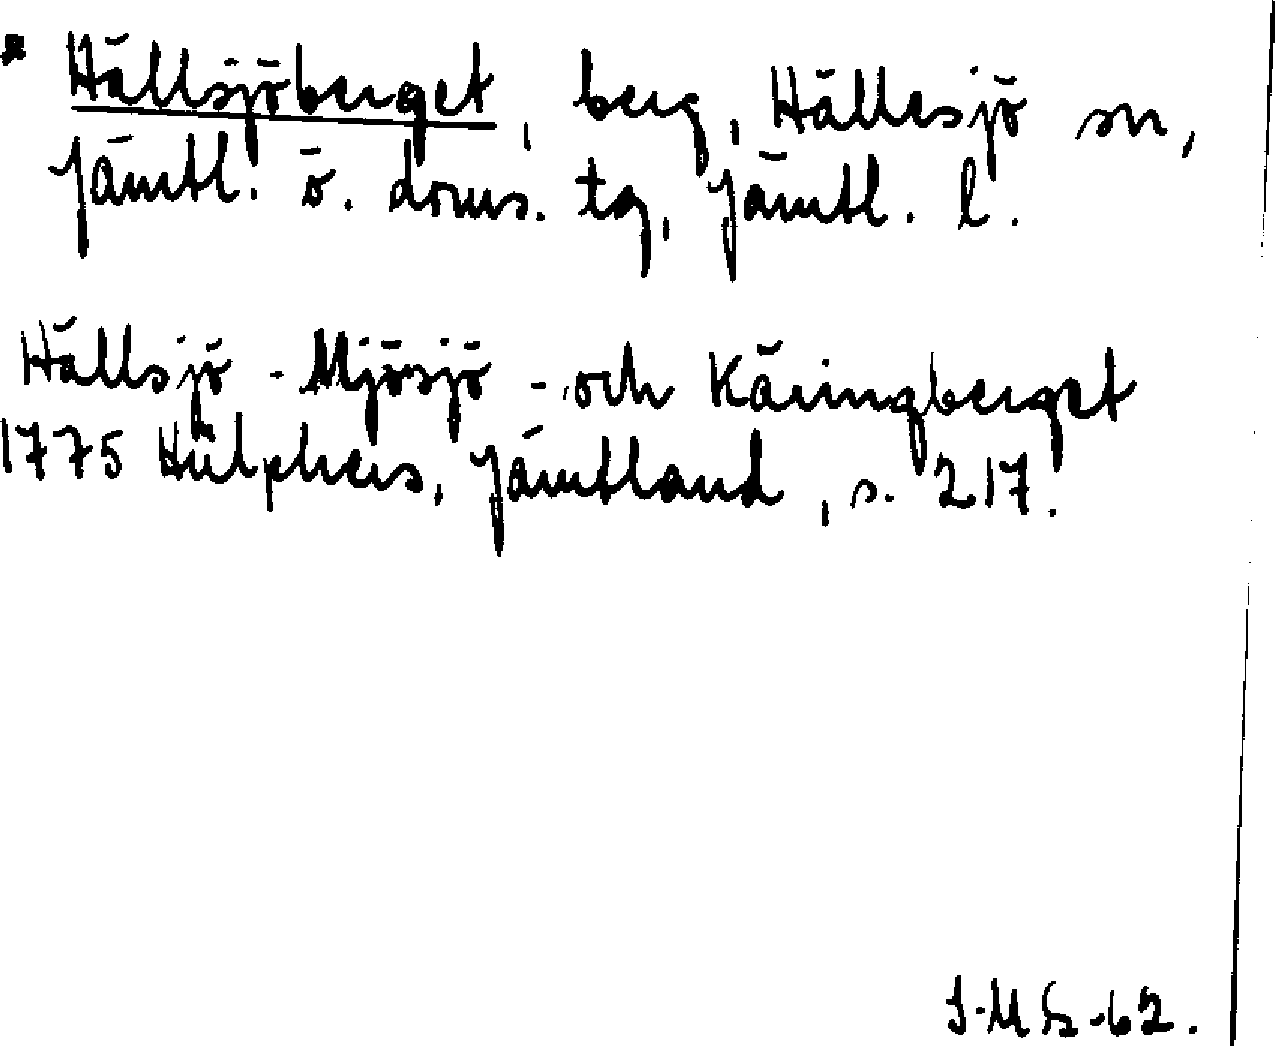 * Hällsjöberget, berg, Hällesjö sn,
Jämtl. ö. doms. tg, Jämtl. l.
Hällsjö - Mjösjö - och Käringberget
1775 Hülphers, Jämtland, s. 217.
-62.